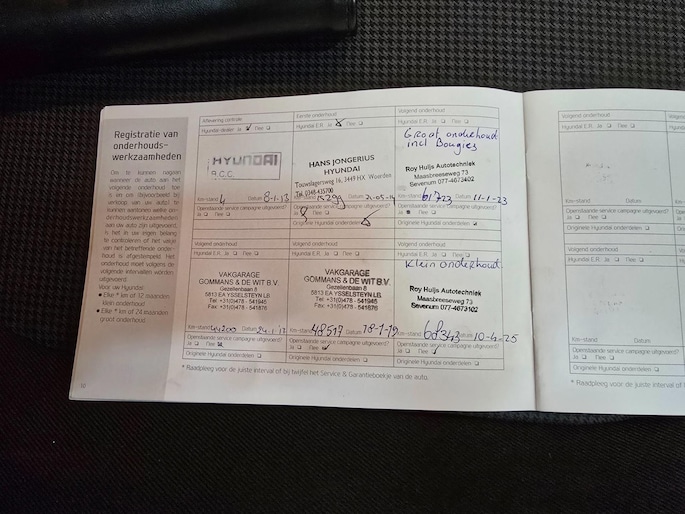 Registratie van
onderhouds-
werkzaamheden
Om te kunnen nagaan
wanneer de auto aan het
volgende onderhoud toe
is en om (bijvoorbeeld bij
verkoop van uw auto) te
kunnen aantonen welke on-
derhoudswerkzaamheden
aan uw auto zijn uitgevoerd,
is het in uw eigen belang
te controleren of het vakje
van het betreffende onder-
houd is afgestempeld. Het
onderhoud moet volgens de
volgende intervallen worden
uitgevoerd:
Voor uw Hyundai:
● Elke * km of 12 maanden
klein onderhoud
● Elke * km of 24 maanden
groot onderhoud
Aflevering controle
Hyundai dealer: Ja Nee
HYUNDAI
A.C.C.
Km-stand 4 Datum 8-1-13
Openstaande service campagne uitgevoerd?
Ja Nee
Eerste onderhoud
Hyundai E.R. Ja Nee
HANS JONGERIUS
HYUNDAI
Touwslagersweg 16, 3449 HX Woerden
Tel. 0348-435790
Km-stand 15299 Datum
Openstaande service campagne uitgevoerd?
Ja Nee
Originele Hyundai onderdelen
Volgend onderhoud
Hyundai E.R. Ja Nee
Groot onderhoud
incl Bougies
Roy Huijs Autotechniek
Maasbreeseweg 73
Sevenum 077-4673402
Km-stand 61723 Datum 11-1-23
Openstaande service campagne uitgevoerd?
Ja Nee
Originele Hyundai onderdelen
Volgend onderhoud
Hyundai E.R. Ja Nee
VAKGARAGE
GOMMANS & DE WIT B.V.
Gezellenbaan 8
5813 EA YSSELSTEYN LB
Tel: +31(0)478 - 541946
Fax: +31(0)478 - 541876
Km-stand 44200 Datum
Openstaande service campagne uitgevoerd?
Ja Nee
Originele Hyundai onderdelen
Volgend onderhoud
Hyundai E.R. Ja Nee
VAKGARAGE
GOMMANS & DE WIT B.V.
Gezellenbaan 8
5813 EA YSSELSTEYN LB
Tel: +31(0)478 - 541946
Fax: +31(0)478 - 541876
Km-stand 48517 Datum 18-1-19
Openstaande service campagne uitgevoerd?
Ja Nee
Originele Hyundai onderdelen
Volgend onderhoud
Hyundai E.R. Ja Nee
Klein onderhoud
Roy Huijs Autotechniek
Maasbreeseweg 73
Sevenum 077-4673402
Km-stand 68343 Datum 10-4-25
Openstaande service campagne uitgevoerd?
Ja Nee
Originele Hyundai onderdelen
* Raadpleeg voor de juiste interval of bij twijfel het Service & Garantieboekje van de auto.
Volgend onderhoud
Hyundai E.R. Ja Nee
Km-stand Datum
Openstaande service campagne uitgevoerd?
Ja Nee
Originele Hyundai onderdelen
Volgend onderhoud
Hyundai E.R. Ja Nee
Km-stand Datum
Openstaande service campagne uitgevoerd?
Ja Nee
Originele Hyundai onderdelen
* Raadpleeg voor de juiste interval of